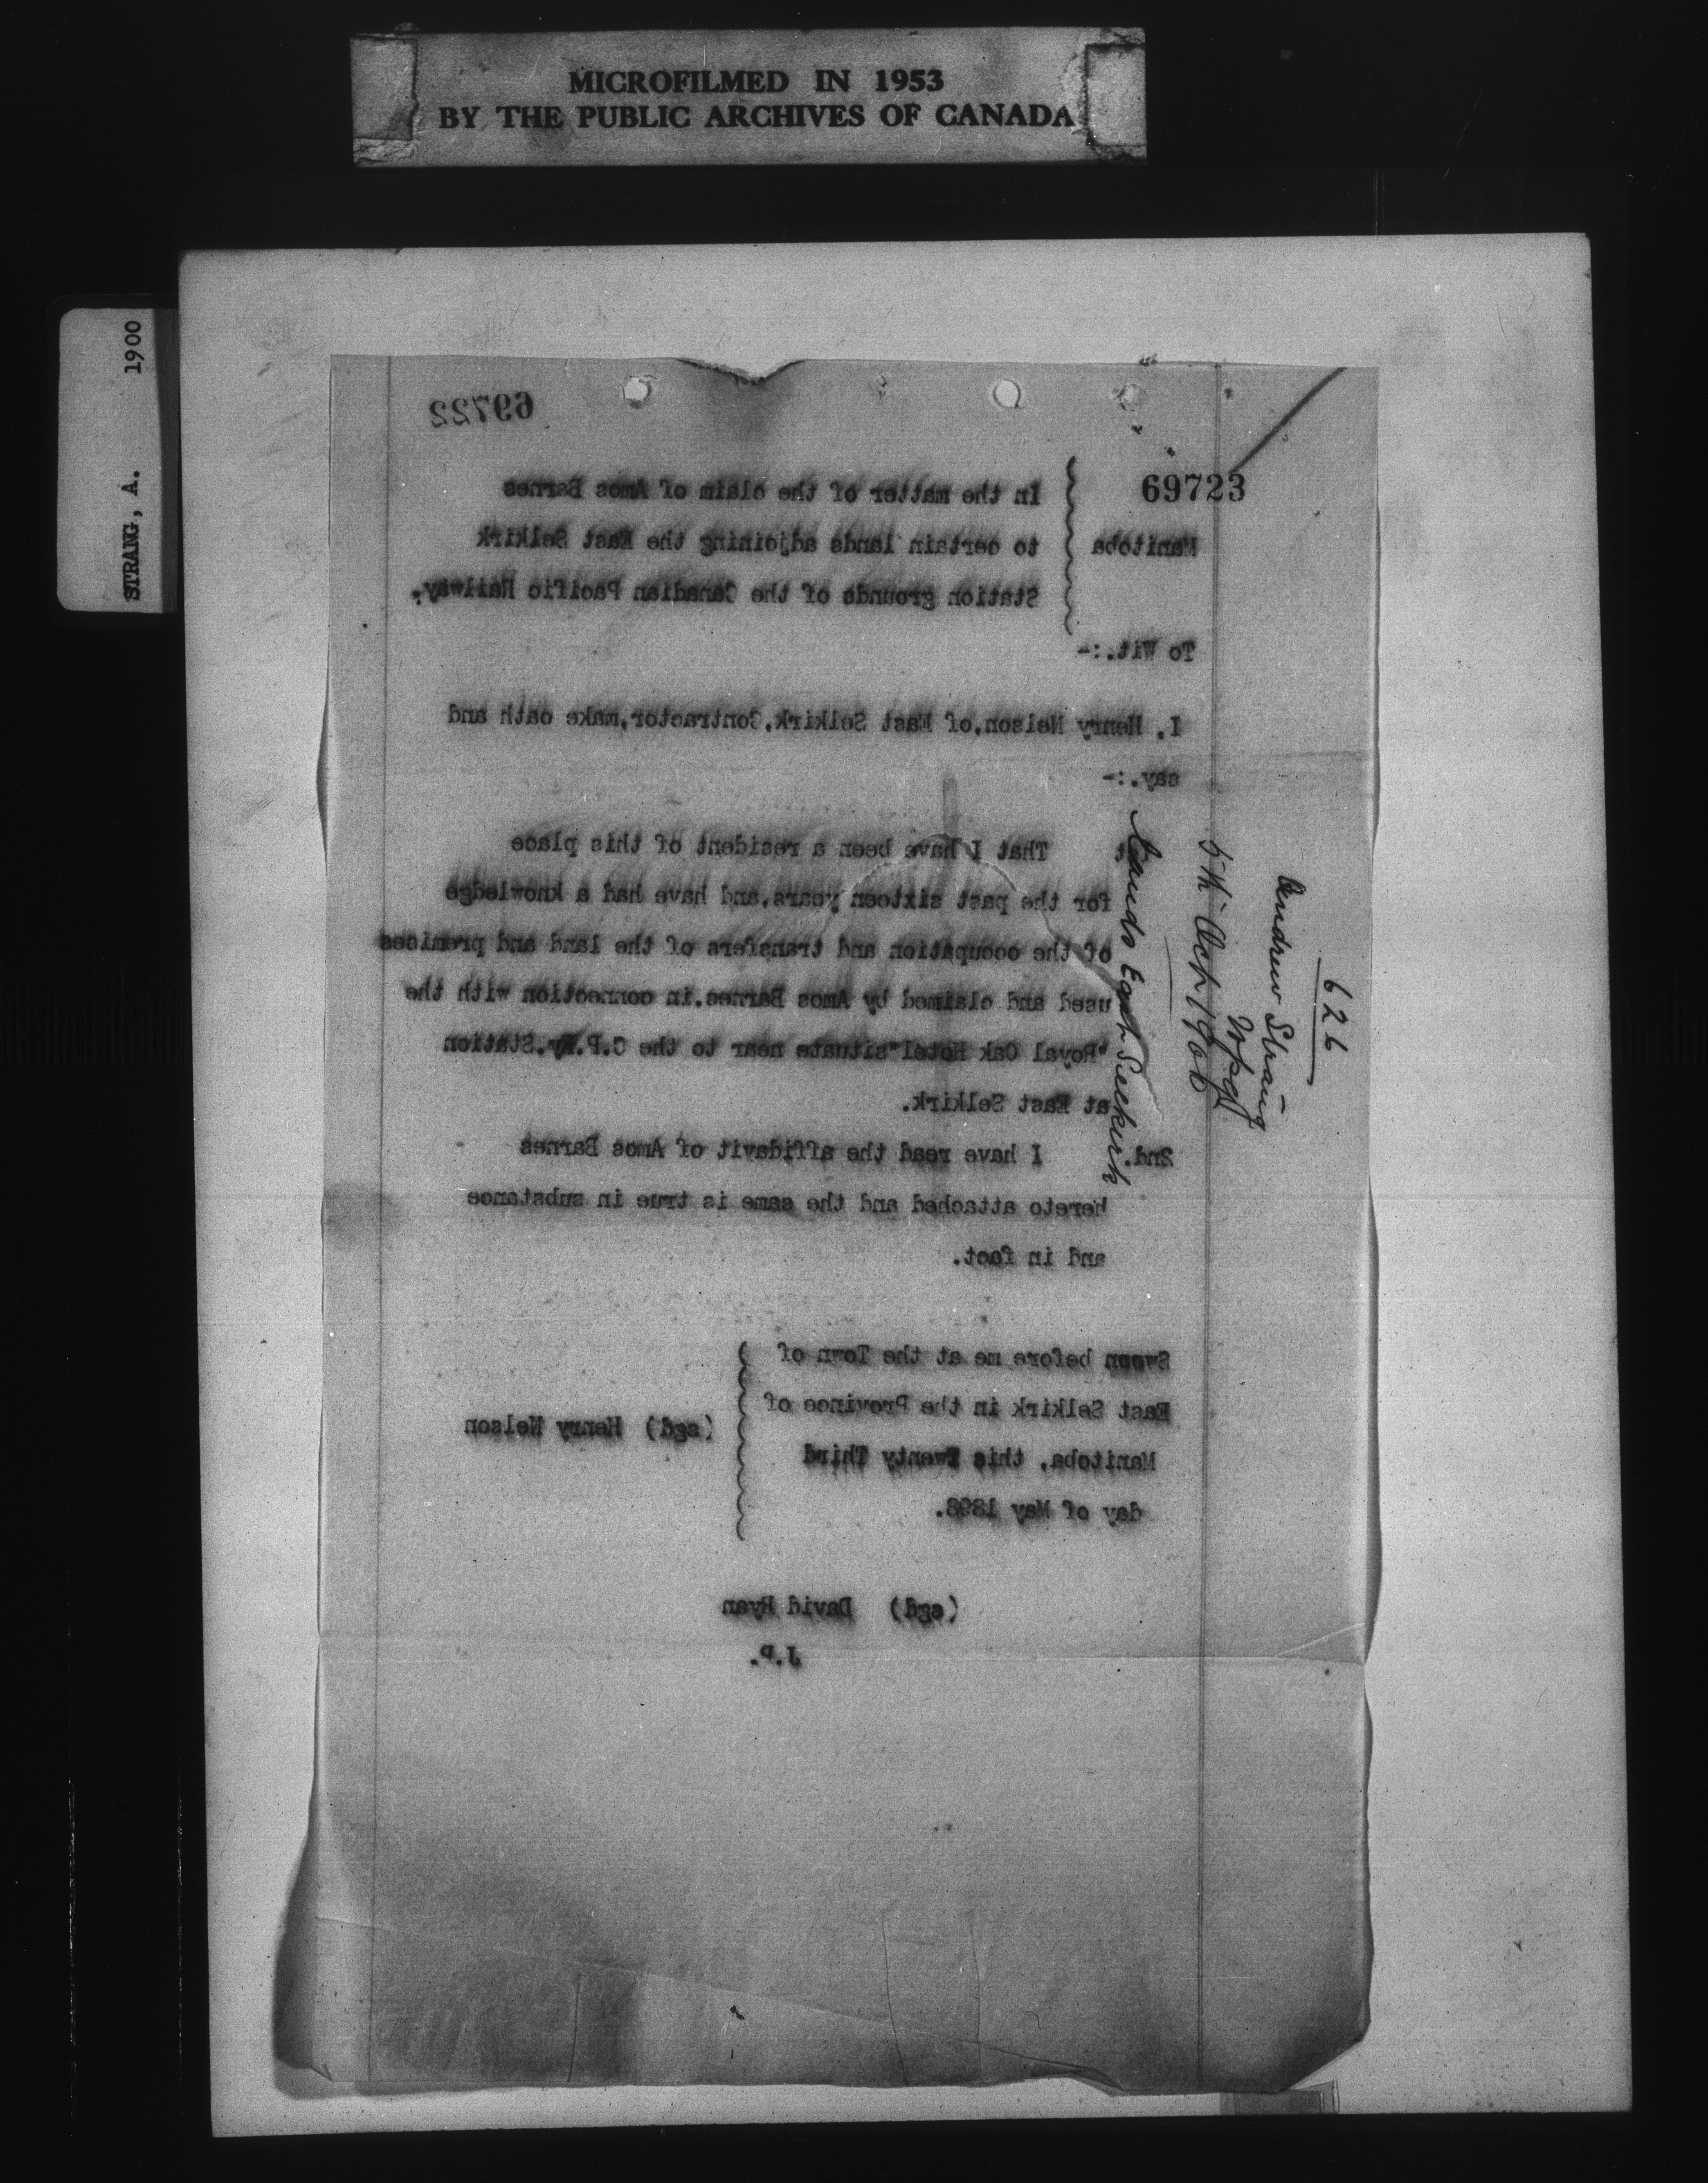 MICROFILMED IN 1953
BY THE PUBLIC ARCHIVES OF CANADA
STRANG, A. 1900
69722
69723
Manitoba
To Wit.:-
In the matter of the claim of Amos Barnes
to certain lands adjoining the East Selkirk
Station grounds of the Canadian Pacific Railway.
I, Henry Nelson,of East Selkirk,Contractor,make oath and
say.:-
That I have been a resident of this place
for the past sixteen years,and have had a knowledge
of the occupation and transfers of the land and premises
used and claimed by Amos Barnes.in connection with the
"Royal Oak Hotel"situate near to the C.P.Ry.Station
at East Selkirk.
2nd. I have read the affidavit of Amos Barnes
hereto attached and the same is true in substance
and in fact.
Sworn before me at the Town of
East Selkirk in the Province of
Manitoba, this Twenty Third
day of May 1898.
(sgd) Henry Nelson
(sgd) David Ryan
J.P.
626
Andrew Strang
Wpg
5th Oct 1900
Lands East Selkirk